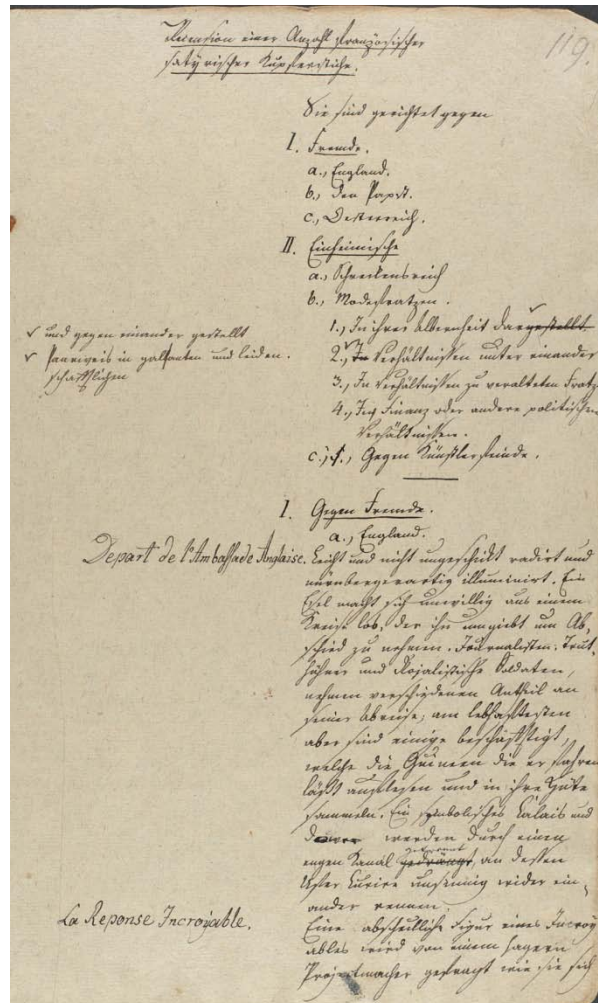 119.
Recension einer Anzahl französischer
satyrischer Kupferstiche.
Sie sind gerichtet gegen
I. Fremde.
a., England.
b., Den Papst.
c., Oesterreich.
II. Einheimische
a., Schreckensreich
b., Modefratzen.
1., In ihrer Albernheit dargestellt
✓ und gegen einander gestellt
2., In Verhältnissen unter einander
✓ in galanten und leiden-
schafftlichen
3., In Verhältnissen zu veralteten Fratz
4., In Finanz oder andere politischen
Verhältnissen.
c., Gegen Künstlerfeinde.
I. Gegen Fremde.
a., England.
Depart de l'Ambassade Anglaise.
Leicht und nicht ungeschickt radirt und
nürnbergerartig illuminirt. Ein
Esel macht sich unwillig aus einem
Kreise los, der ihn umgiebt um Ab-
schied zu nehmen. Journalisten, Trut-
hühner und Rojalistische Soldaten,
nehmen verschiedenen Antheil an
seiner Abreise; am lebhafftesten
aber sind einige beschäfftigt,
welche die Guineen die er fahren
läßt auflesen und in ihre Hüte
sammeln. Ein symbolisches Calais und
werden durch einen
engen Kanal getrennt, an dessen
Ufer Kurire unsinnig wider ein-
ander rennen.
La Reponse Incroyable.
Eine abscheuliche Figur eines Incroy
ables wird von einem hagern
Projectmacher gefragt wie sie sich